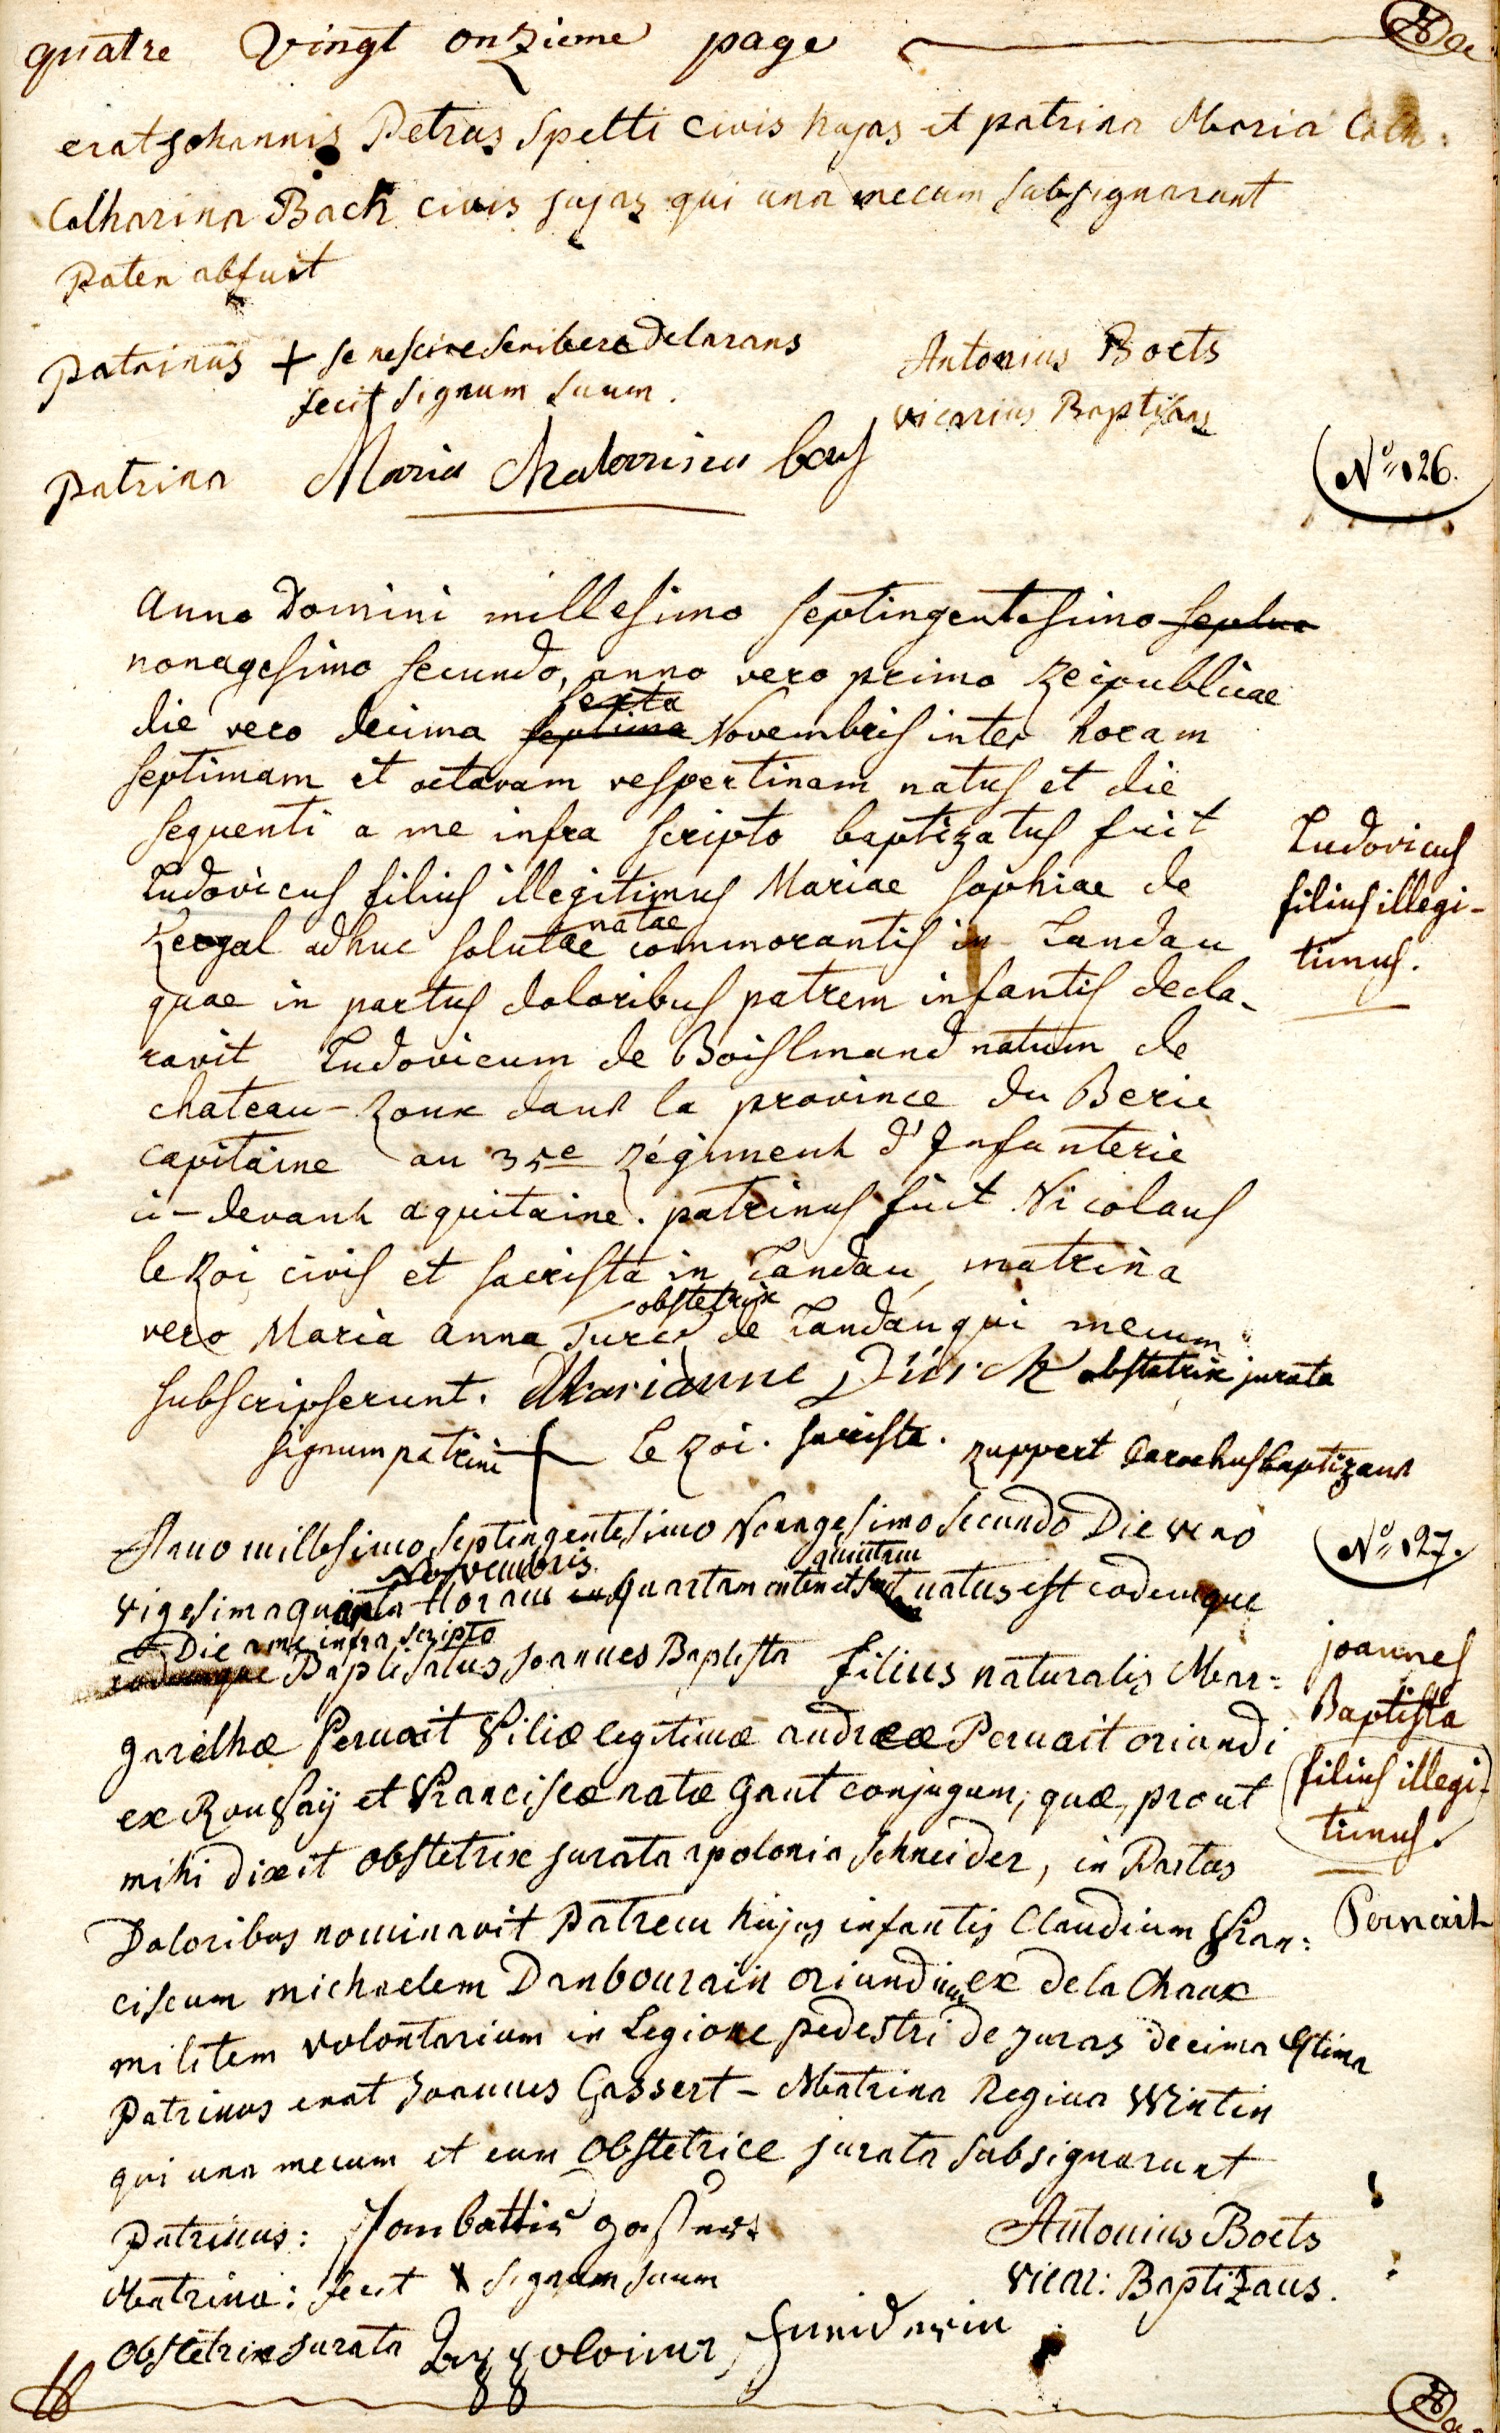 quatre vingt onzieme page
erat Johannis Petrus Spelti civis hujas et patrina Maria Cath:
Catharina Back civis hujas qui una mecum subsignarunt
Pater abfuit
Patrinus + se nescire scribere Delarans
fecit signum suum.
Antonius Boets
vicarius Baptisans
patrina Maria
No 126.
Anno Domini millesimo septingentesimo
nonagesimo secundo, anno vero primo Reipublicae
die vero decima sexta septima Novembris inter horam
septimam et octavam vespertinam natus et die
sequenti a me infra scripto baptizatus fuit
Ludovicus filius illegitimus Mariae Sophiae de
adhuc solutae natae commorantis in Landau
quae in partus doloribus patrem infantis decla-
ravit Ludovicum de Boislmand natum de
chateau-Roux dans la province du Berie
capitaine au 35e Régiment d'Infanterie
ci-devant aquitaine. patrinus fuit Nicolaus
le Roi civis et sacrista in Landau, matrina
vero Maria Anna Turck obstetrix de Landau qui mecum
subscripserunt. Marianne Dürck obstetrix jurata
signum patrini + le Roi. sacrista. Ruppert Parochus baptizans
Ludovicus
filius illegi-
timus.
Anno millesimo septingentesimo Nonagesimo secundo Die vero
No 127.
vigesima quinta Novembris Horam quartam inter et quintam natus est eodemque
Die a me infra scripto Baptisatus Joannes Baptista filius naturalis Mar:
garethæ Pernait Filiæ legitimæ andreæ Pernait oriundi
ex Roussaÿ et Franciscæ natæ Gant conjugum, quæ, prout
mihi dixit obstetrix jurata apolonia Schneider, in Partus
Doloribus nominavit Patrem hujus infantis Claudium Fran:
ciscum michaelem Danbourain oriundum ex de la Chaux
militem volontarium in Legione pedestri de Juras decima septima
Patrinus erat Joannes Gassert - Matrina Regina Wintin
qui una mecum et cum obstetrice jurata subsignarunt
joannes
Baptista
filius illegi-
timus.
Pernait
Patrinus: Jombattis gassert
Antonius Boets
Matrina: fecit x signum suum
vicar: Baptizans.
Obstetrix jurata